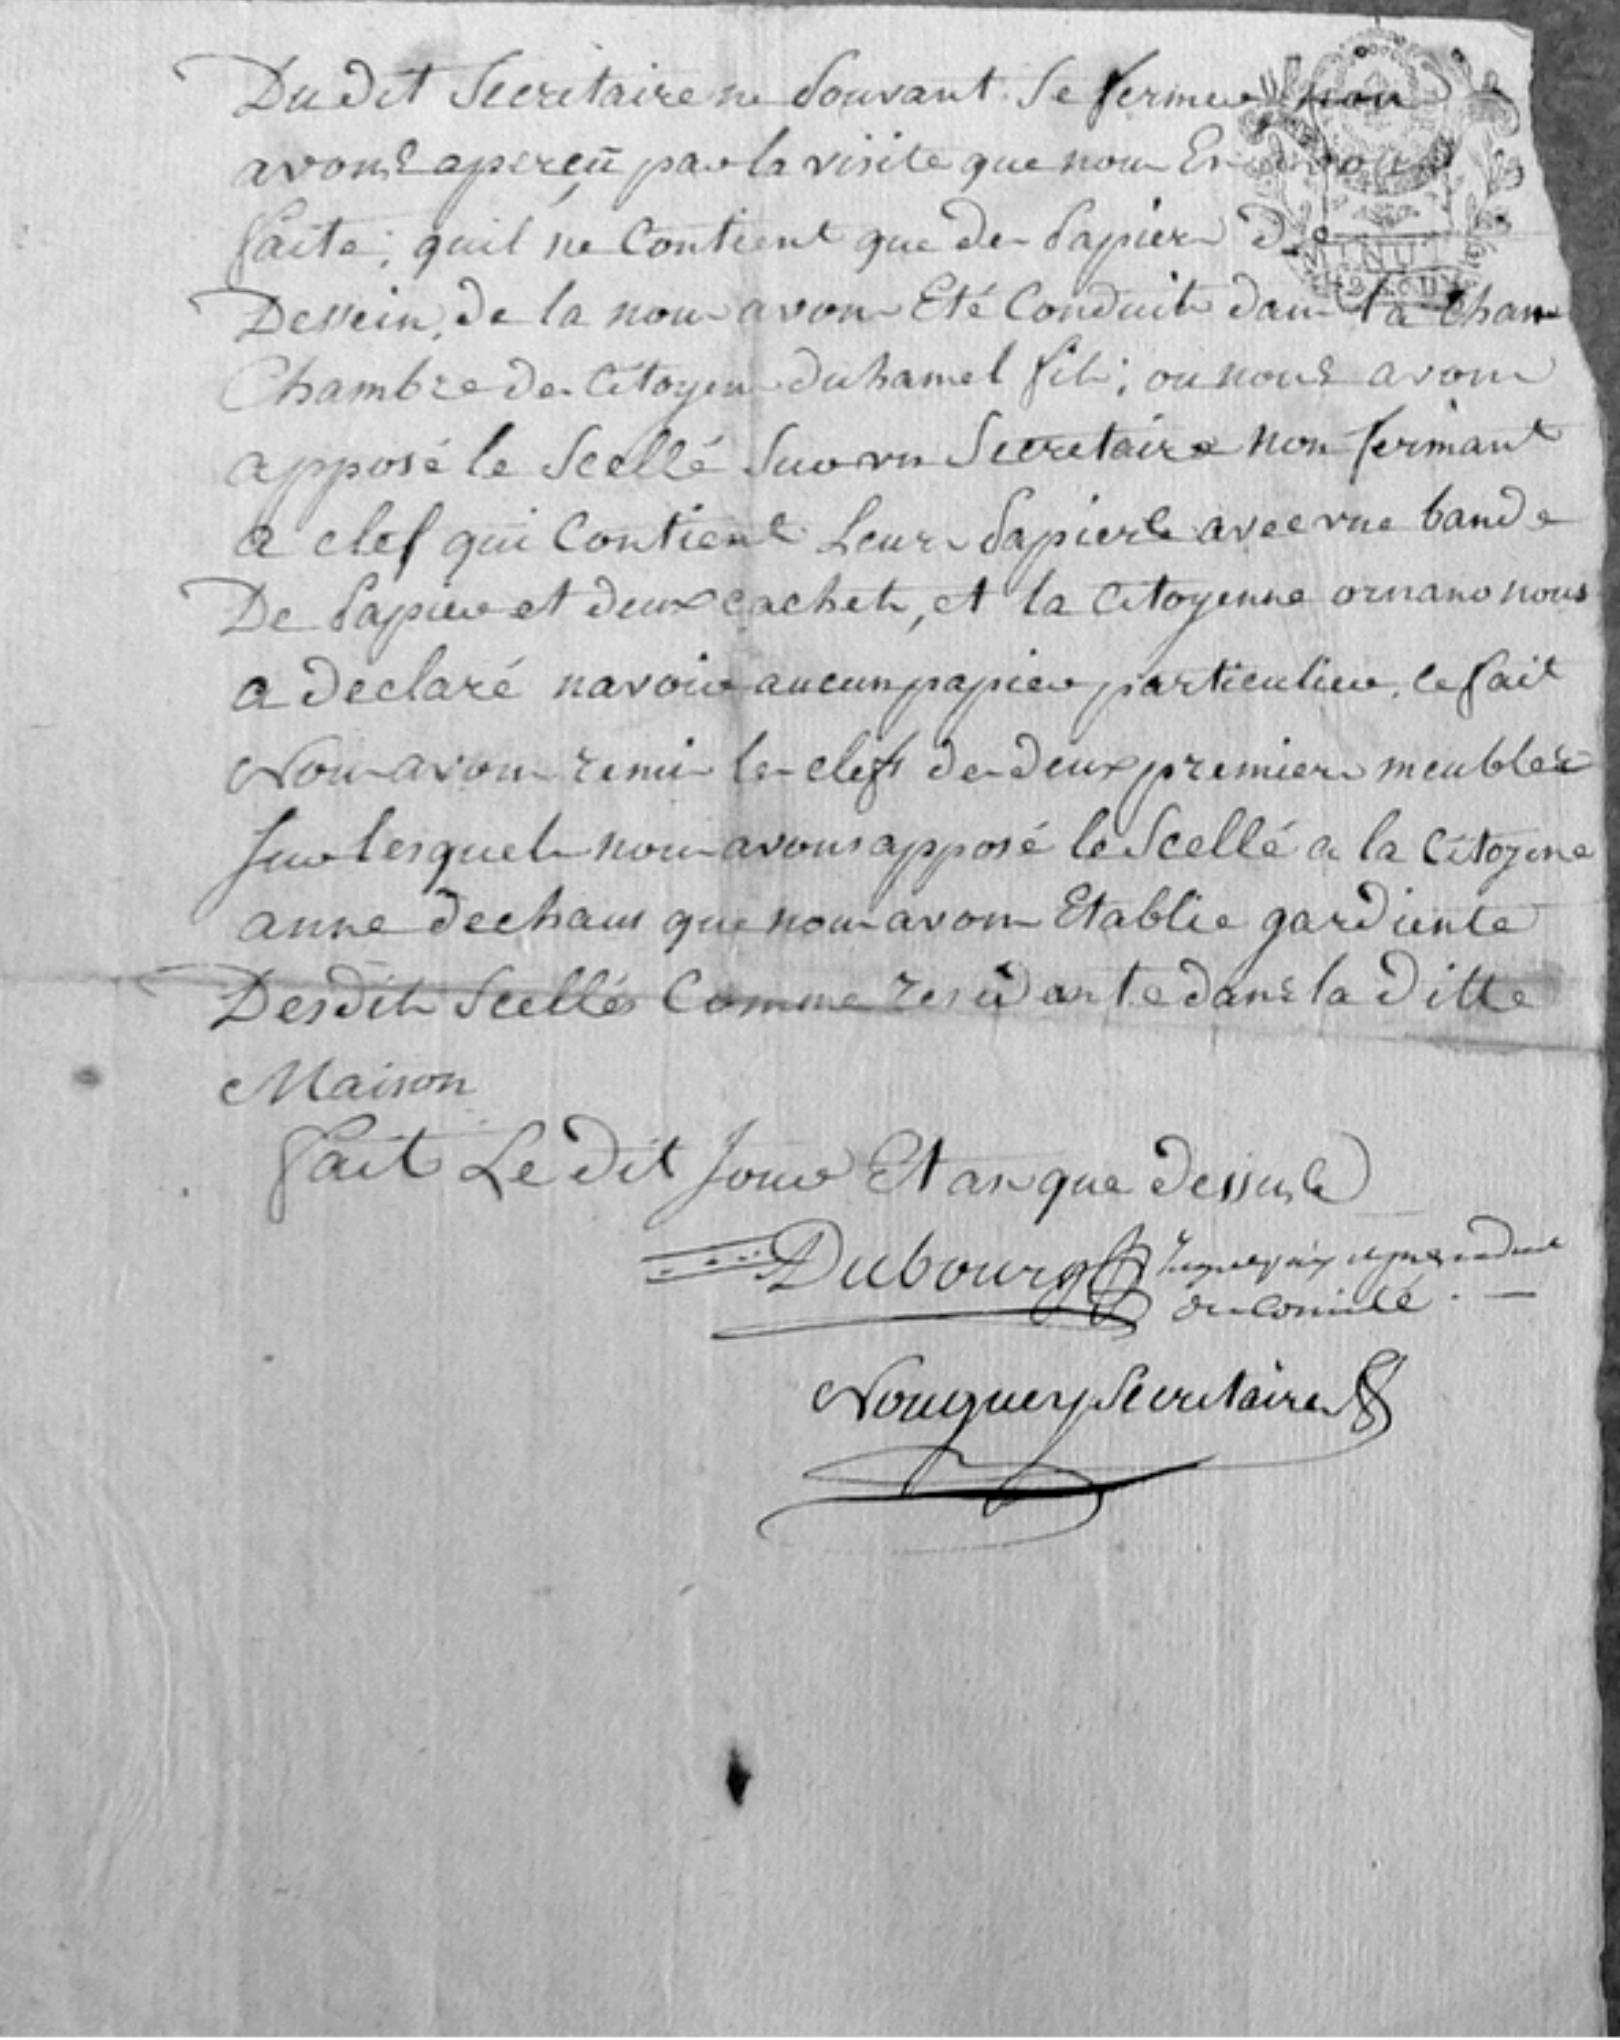 Du dit Secretaire ne pouvant Se fermer nous
avons aperçü par la visite que nous En avons
faite, quil ne Contient que des papiers de
Dessein, de la nous avons Eté Conduits dans la Cham
Chambre des Citoyens duhamel fils; ou nous avons
apposé le Scellé Sur un Secretaire non fermant
a clef qui Contient Leurs papiers avec une bande
De papier et deux cachets, et la Citoyenne ornano nous
a declaré navoir aucun papier particulier, ce fait
Nous avons remis les clefs des deux premiers meubles
Sur lesquels nous avons apposé le Scellé a la Citoyene
anne dechaus que nous avons Etablie gardiente
Desdits Scellés Comme residante dans la Ditte
Maison
fait Le dit Jour Et an que dessus
Dubourg
du Comité
Nouguey Secretaire